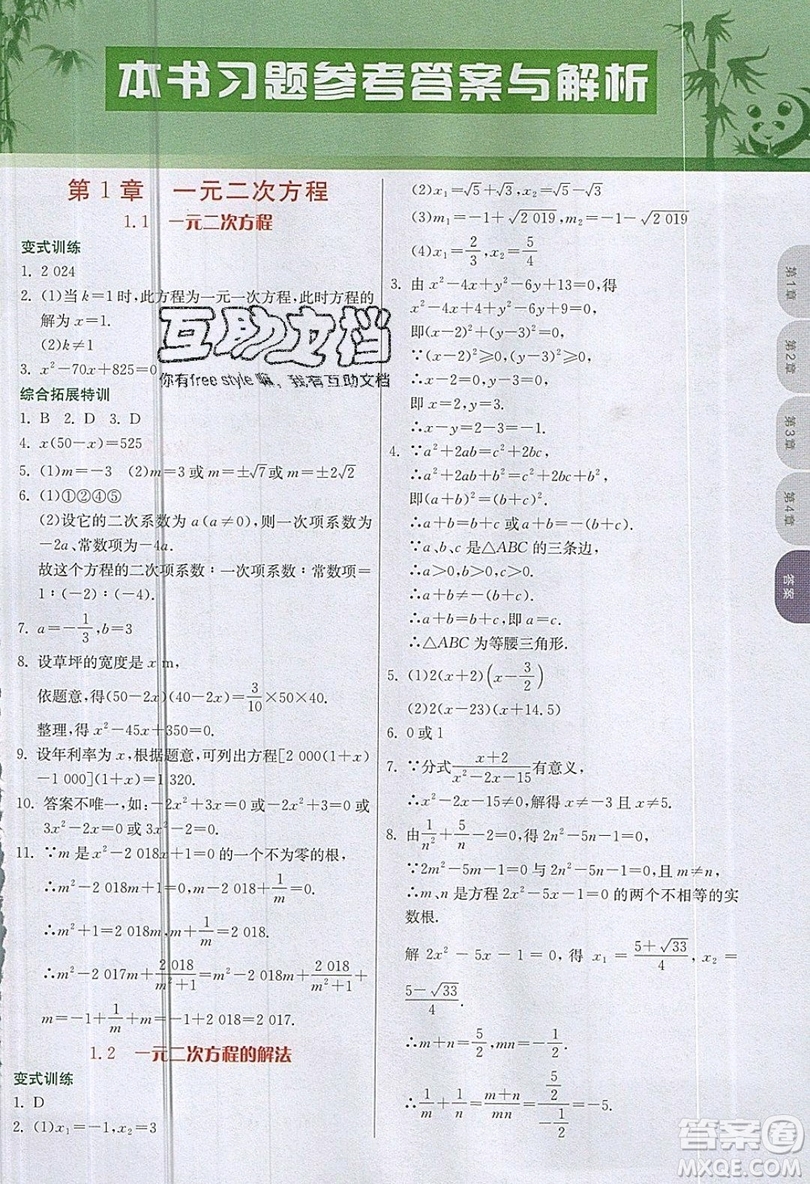 本书习题参考答案与解析
第1章 一元二次方程
1.1 一元二次方程
变式训练
1. 2 024
2. (1)当k=1时,此方程为一元一次方程,此时方程的
解为x=1.
(2)k≠1
3. x²-70x+825=0
综合拓展特训
1. B 2. D 3. D
4. x(50-x)=525
5. (1)m=-3 (2)m=3或m=±√7或m=±2√2
6. (1)①②④⑤
(2)设它的二次系数为a(a≠0),则一次项系数为
-2a、常数项为-4a.
故这个方程的二次项系数∶一次项系数∶常数项=
1∶(-2)∶(-4).
7. a=-1/3,b=3
8. 设草坪的宽度是x m,
依题意,得(50-2x)(40-2x)=3/10×50×40.
整理,得x²-45x+350=0.
9. 设年利率为x,根据题意,可列出方程[2 000(1+x)
-1 000](1+x)=1 320.
10. 答案不唯一,如-2x²+3x=0或-3x²+2x=0或
3x²-2x=0或3x²-2=0.
11. ∵m是x²-2 018x+1=0的一个不为零的根,
∴m²-2 018m+1=0,m-2 018+1/m=0.
∴m²+1=2 018m,m+1/m=2 018.
∴m²-2 017m+2 018/(m²+1)=m-1+2 018/(2 018m)
=m+1/m-1=2 018-1=2 017.
1.2 一元二次方程的解法
变式训练
1. D
2. (1)x₁=-1,x₂=3
(2)x₁=√5+√3,x₂=√5-√3
(3)m₁=-1+√2 019,m₂=-1-√2 019
(4)x₁=2/3,x₂=5/4
3. 由x²-4x+y²-6y+13=0,得
x²-4x+4+y²-6y+9=0,
即(x-2)²+(y-3)²=0.
∵(x-2)²≥0,(y-3)²≥0,
∴x-2=0,y-3=0,
即x=2,y=3.
∴x-y=2-3=-1.
4. ∵a²+2ab=c²+2bc,
∴a²+2ab+b²=c²+2bc+b²,
即(a+b)²=(b+c)².
∴a+b=b+c或a+b=-(b+c).
∵a、b、c是△ABC的三条边,
∴a>0,b>0,c>0.
∴a+b≠-(b+c).
∴a+b=b+c,即a=c.
∴△ABC为等腰三角形.
5. (1)2(x+2)(x-3/2)
(2)2(x-23)(x+14.5)
6. 0或1
7. ∵分式(x+2)/(x²-2x-15)有意义,
∴x²-2x-15≠0,解得x≠-3且x≠5.
8. 由1/n²+5/n-2=0,得2n²-5n-1=0.
∵2m²-5m-1=0与2n²-5n-1=0,且m≠n,
∴m、n是方程2x²-5x-1=0的两个不相等的实
数根.
解2x²-5x-1=0,得x₁=(5+√33)/4,x₂=
(5-√33)/4.
∴m+n=5/2,mn=-1/2.
∴1/m+1/n=(m+n)/mn=(5/2)/(-1/2)=-5.
第1章
第2章
第3章
第4章
答案
互助文档
你有free style嘛,我有互助文档
答案圈
MXQE.COM